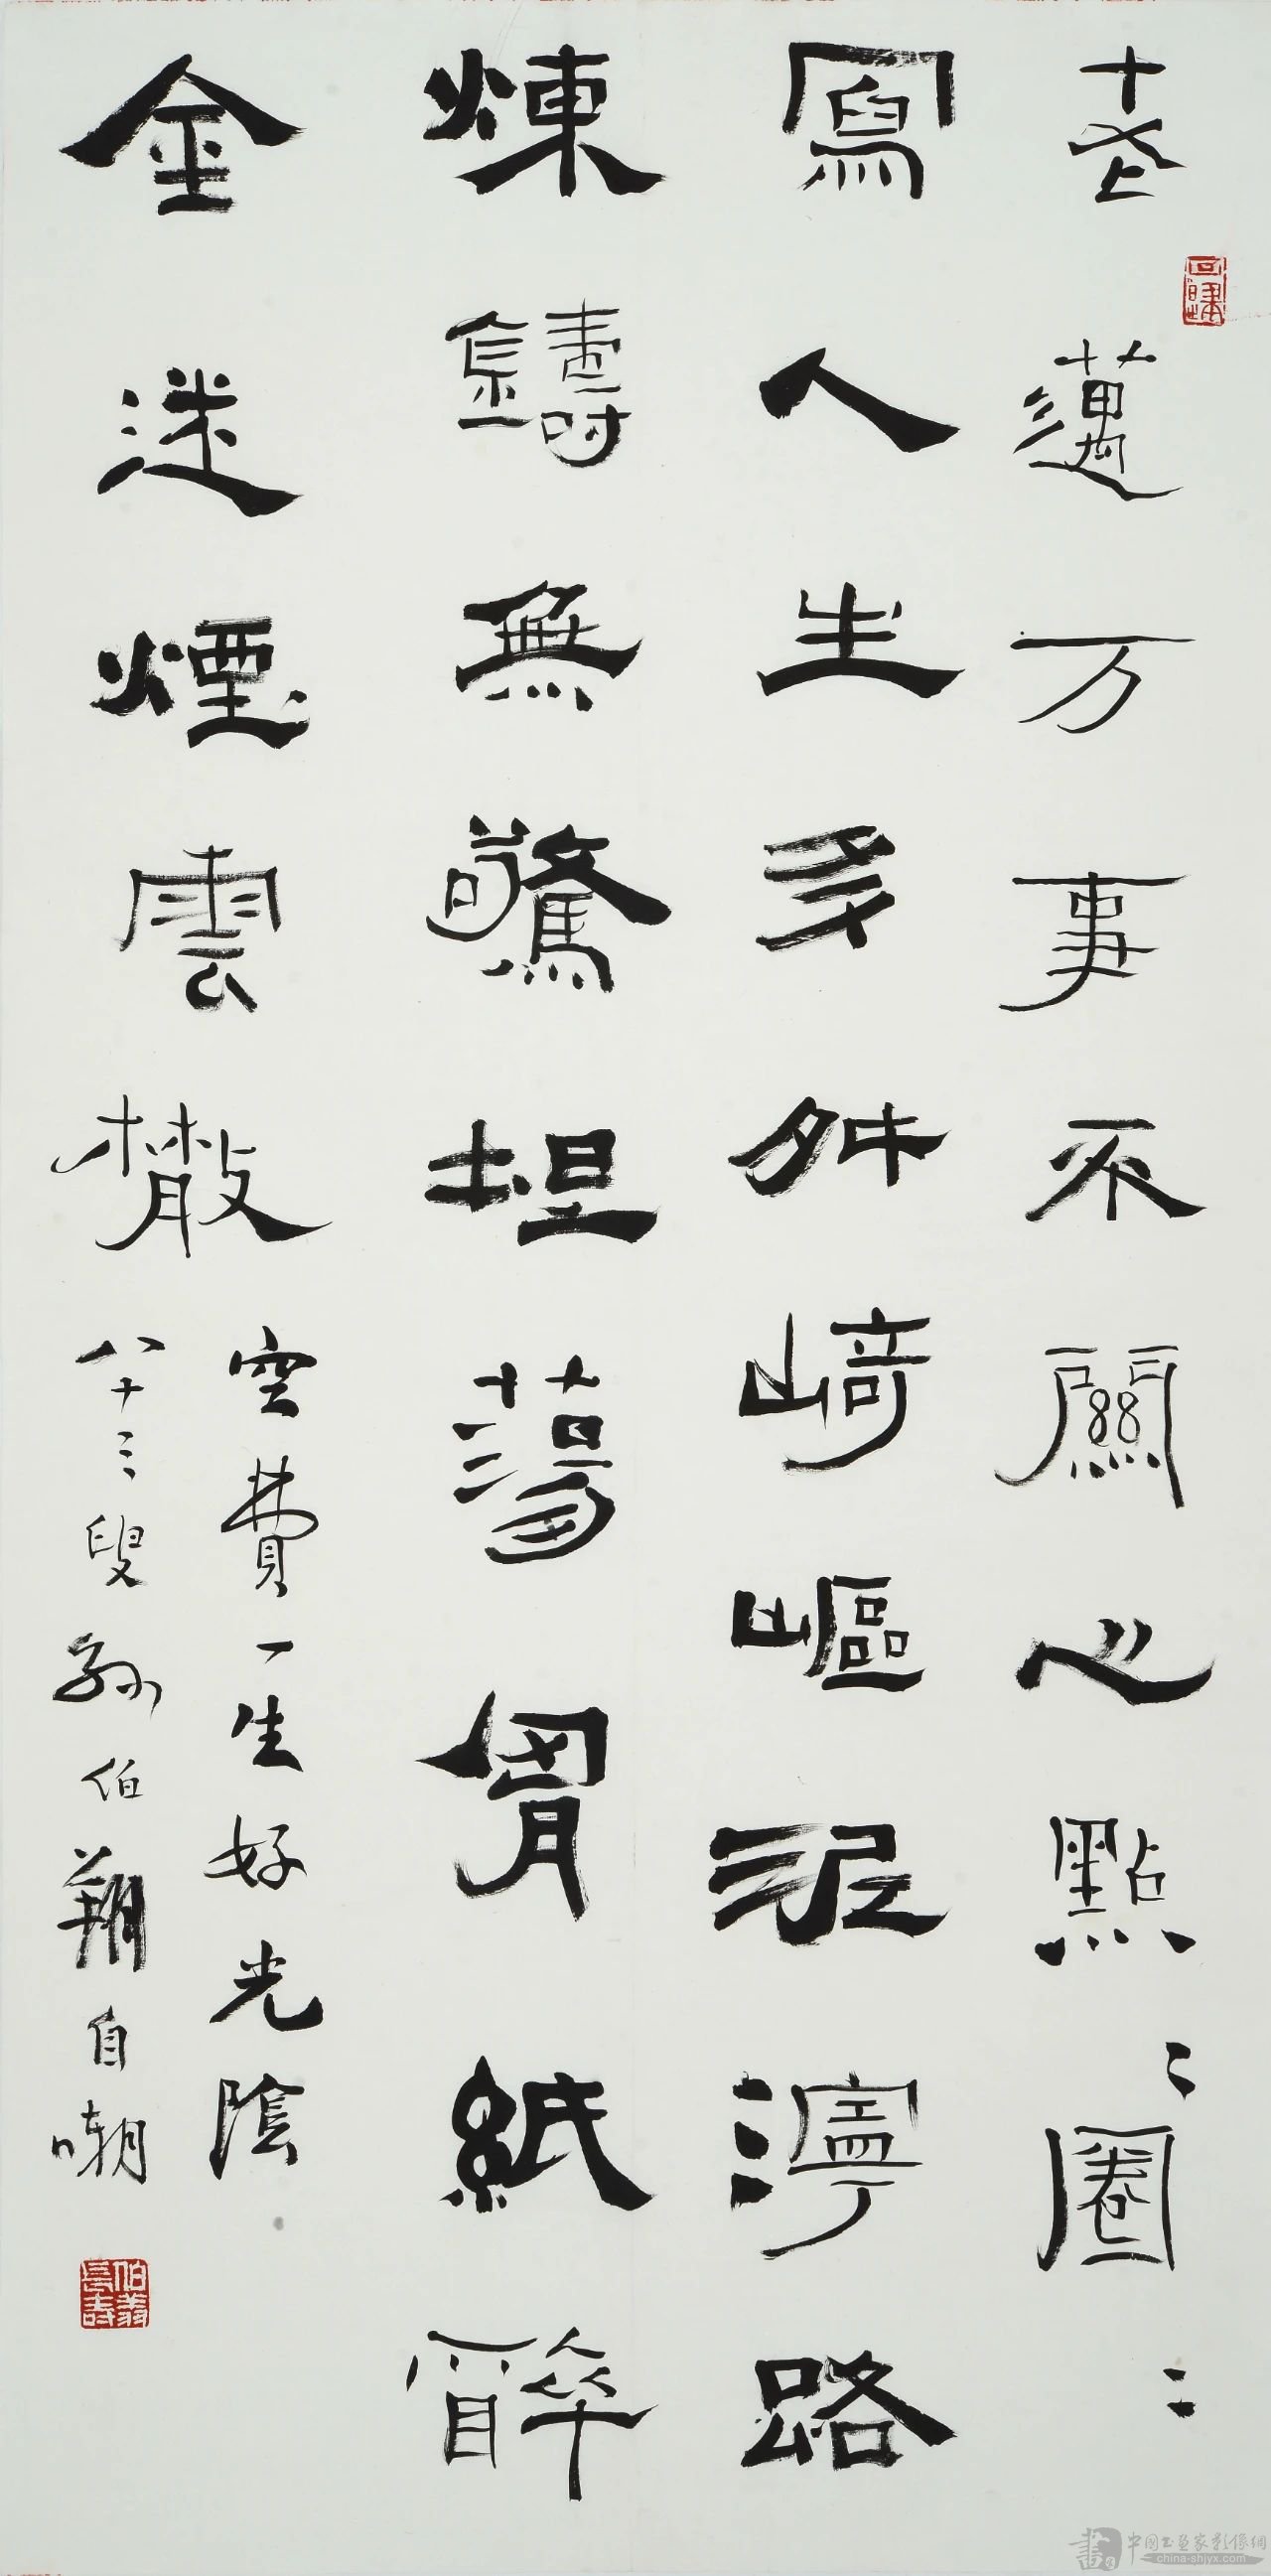 老邁万事不關心點〻圈〻
寫人生多舛崎嶇泥濘路
煉鑄無驚坦蕩胷紙醉
金迷煙雲散
空費一生好光陰
八十三叟孫伯翔自嘲
中國書畫家影像網
china-shjyx.com